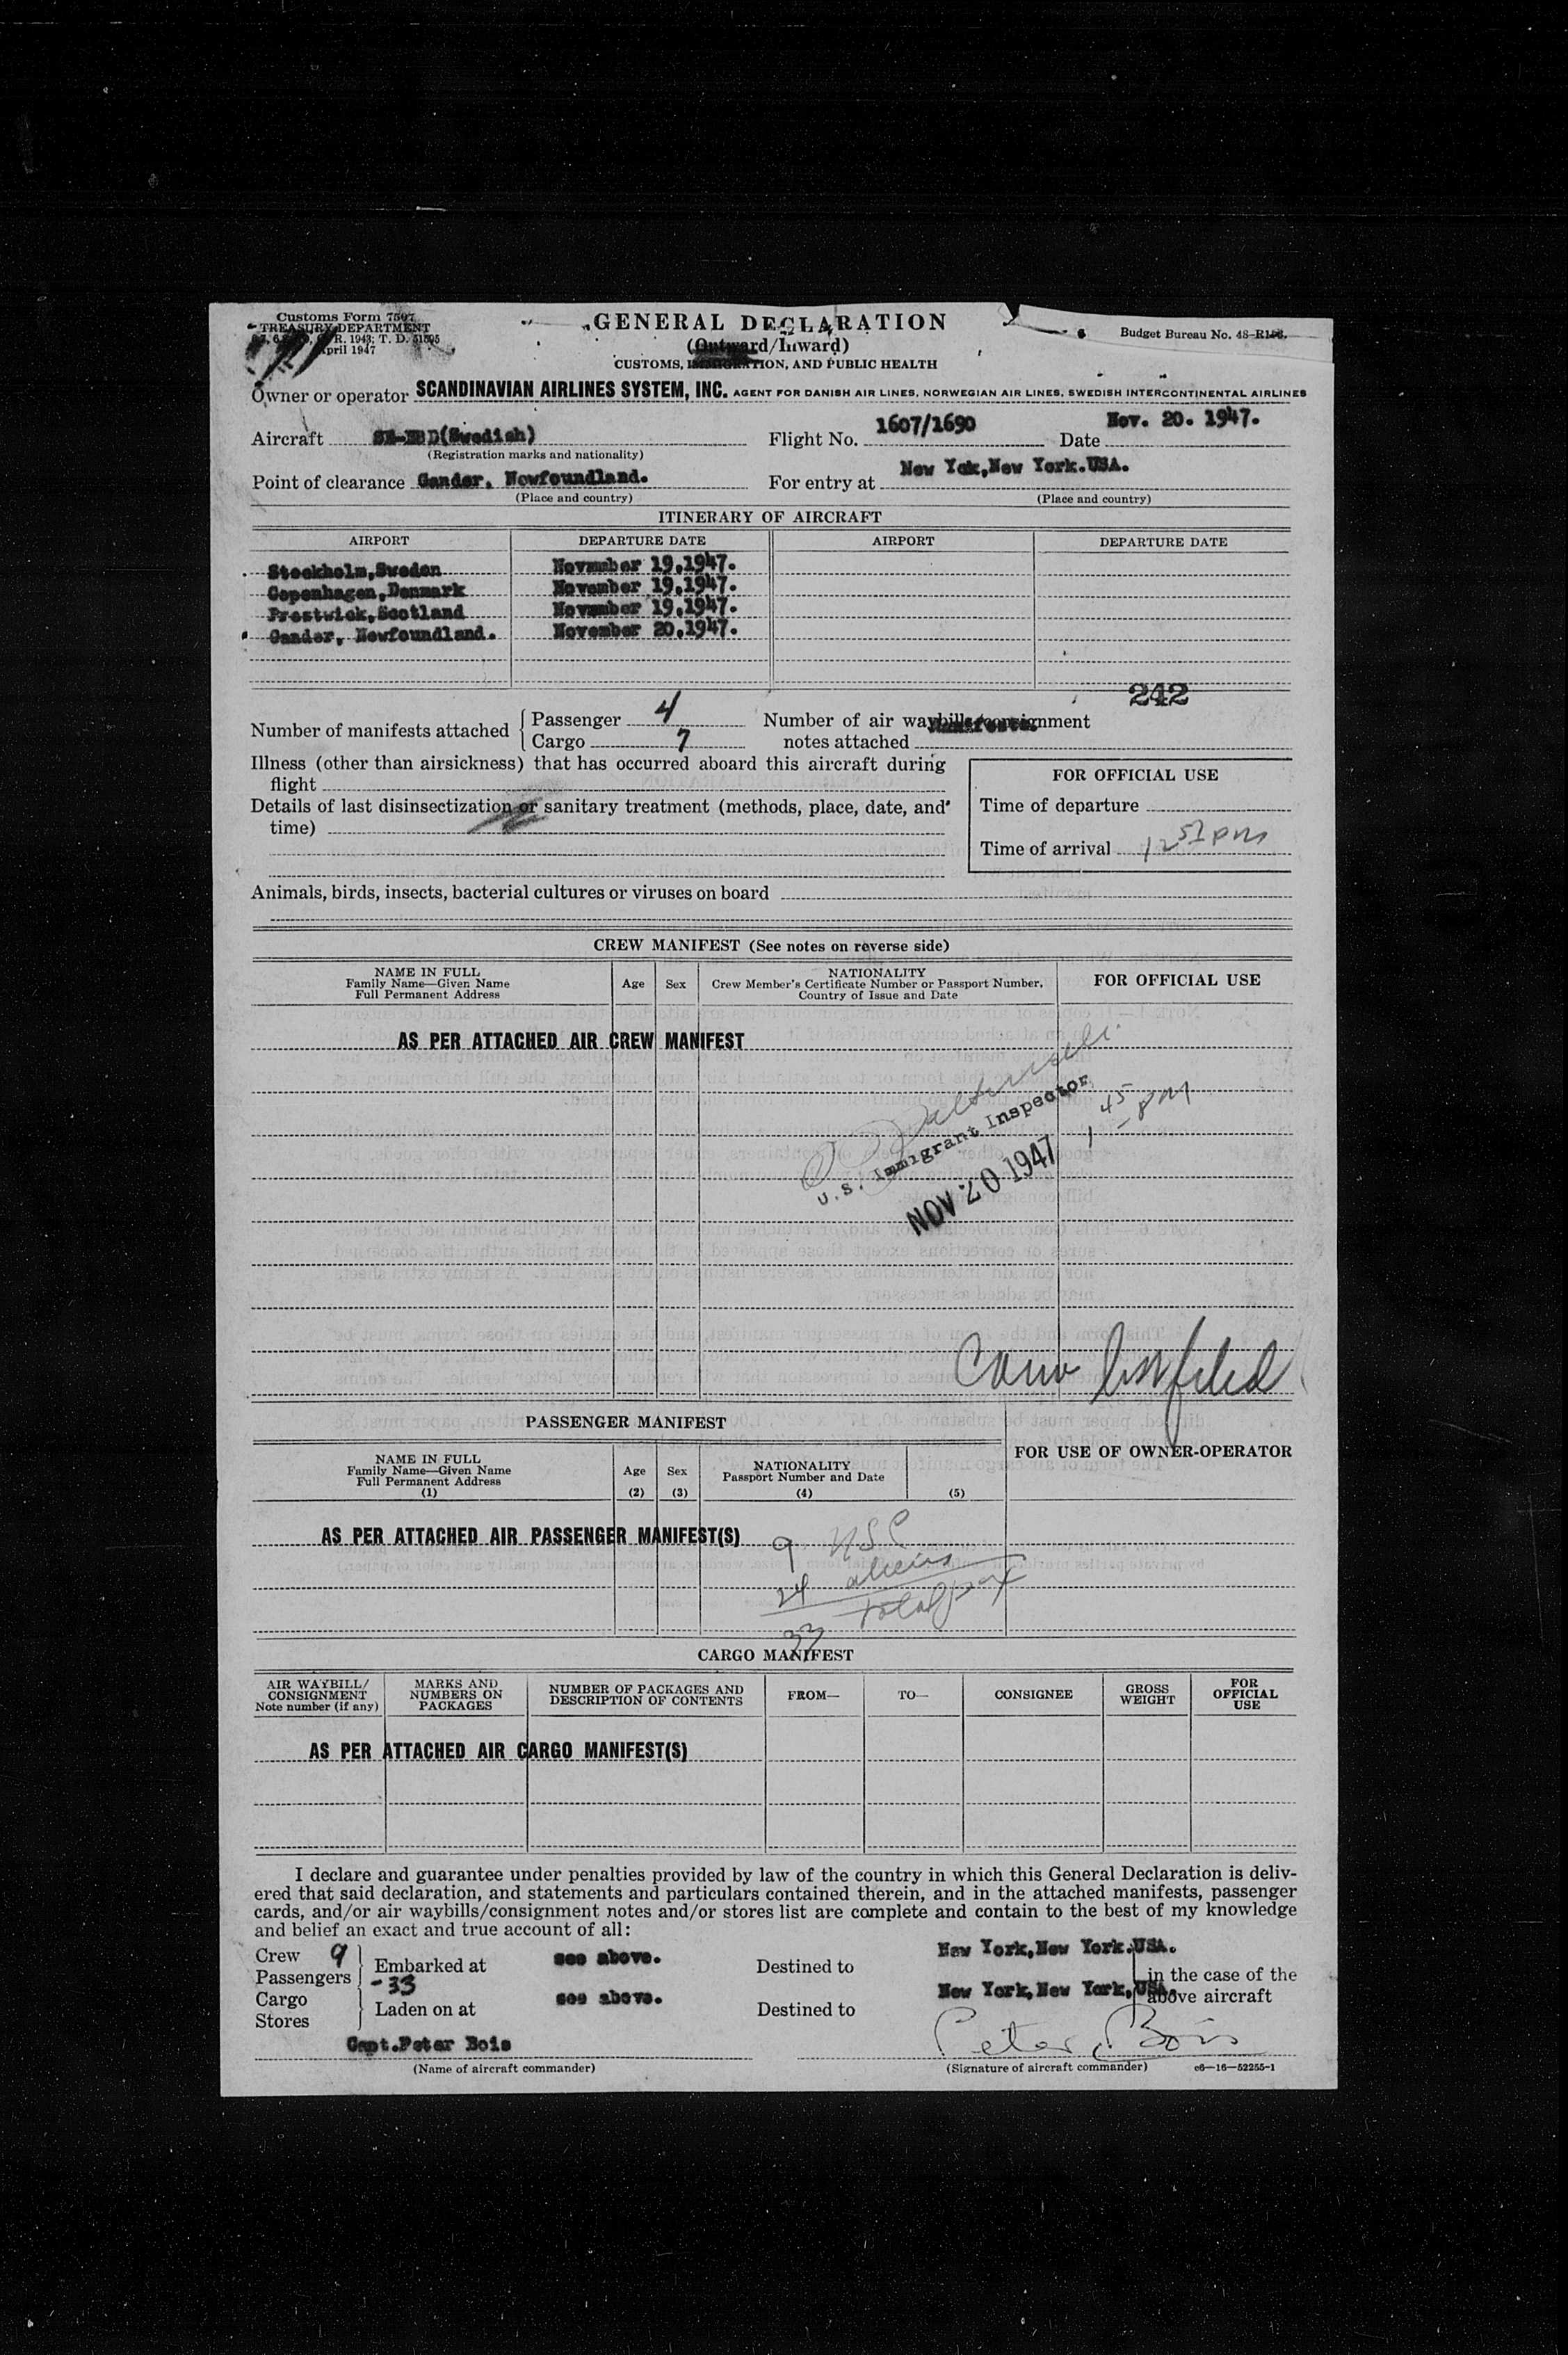 Customs Form 7507
TREASURY DEPARTMENT
April 1947
GENERAL DECLARATION
(Outward/Inward)
CUSTOMS, IMMIGRATION, AND PUBLIC HEALTH
Budget Bureau No. 48-R
Owner or operator SCANDINAVIAN AIRLINES SYSTEM, INC. AGENT FOR DANISH AIR LINES, NORWEGIAN AIR LINES, SWEDISH INTERCONTINENTAL AIRLINES
Aircraft SE-BBD(Swedish) Flight No. 1607/1690 Date Nov. 20. 1947.
(Registration marks and nationality)
Point of clearance Gander, Newfoundland. For entry at New Yok,New York.USA.
(Place and country) (Place and country)
ITINERARY OF AIRCRAFT
AIRPORT DEPARTURE DATE AIRPORT DEPARTURE DATE
Stockholm,Sweden November 19,1947.
Copenhagen,Denmark November 19,1947.
Prestwick,Scotland November 19,1947.
Gander, Newfoundland. November 20,1947.
242
Number of manifests attached Passenger 4 Number of air waybills/consignment
Cargo 7 notes attached
Illness (other than airsickness) that has occurred aboard this aircraft during
flight
FOR OFFICIAL USE
Details of last disinsectization or sanitary treatment (methods, place, date, and
time)
Time of departure
Time of arrival 12 51 pm
Animals, birds, insects, bacterial cultures or viruses on board
CREW MANIFEST (See notes on reverse side)
NAME IN FULL
Family Name—Given Name
Full Permanent Address
Age Sex
NATIONALITY
Crew Member's Certificate Number or Passport Number,
Country of Issue and Date
FOR OFFICIAL USE
AS PER ATTACHED AIR CREW MANIFEST
U.S. Immigrant Inspector
1 45 PM
NOV 20 1947
PASSENGER MANIFEST
FOR USE OF OWNER-OPERATOR
NAME IN FULL
Family Name—Given Name
Full Permanent Address
(1)
Age
(2)
Sex
(3)
NATIONALITY
Passport Number and Date
(4)
(5)
AS PER ATTACHED AIR PASSENGER MANIFEST(S)
9 USC
24 aliens
33 total pax
CARGO MANIFEST
AIR WAYBILL/
CONSIGNMENT
Note number (if any)
MARKS AND
NUMBERS ON
PACKAGES
NUMBER OF PACKAGES AND
DESCRIPTION OF CONTENTS
FROM— TO— CONSIGNEE
GROSS
WEIGHT
FOR
OFFICIAL
USE
AS PER ATTACHED AIR CARGO MANIFEST(S)
I declare and guarantee under penalties provided by law of the country in which this General Declaration is deliv-
ered that said declaration, and statements and particulars contained therein, and in the attached manifests, passenger
cards, and/or air waybills/consignment notes and/or stores list are complete and contain to the best of my knowledge
and belief an exact and true account of all:
Crew 9
Passengers -33
Cargo
Stores
Embarked at see above. Destined to New York,New York.USA.
Laden on at see above. Destined to New York,New York,USA.
in the case of the
above aircraft
Capt.Peter Bois
Peter Bois
(Name of aircraft commander) (Signature of aircraft commander) c6—16—52255-1